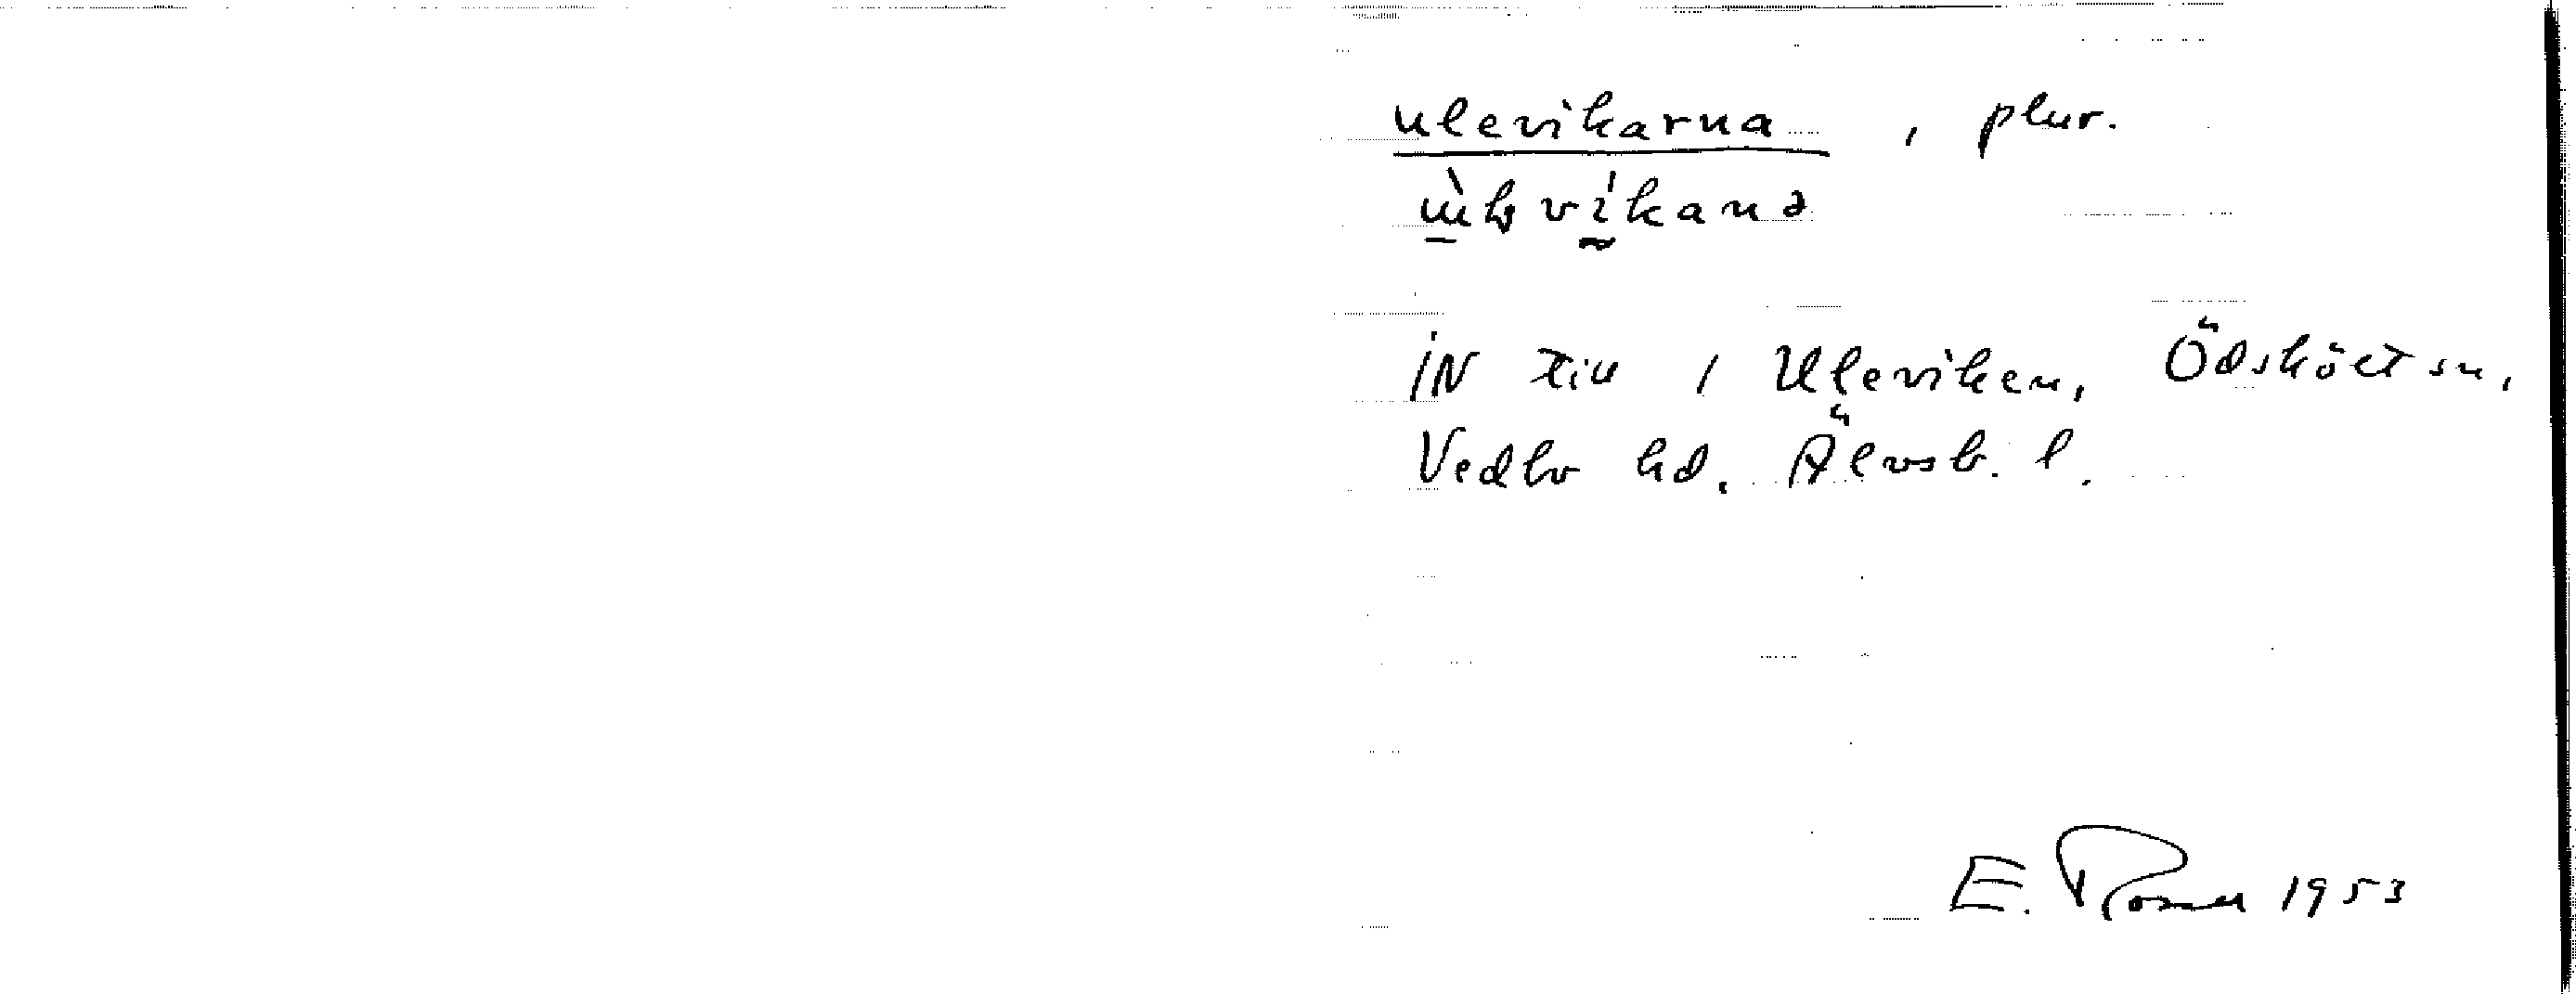 ulevikarna, plur.
IN till 1 Uleviken, Ödskölt sn,
Vedbo hd, Älvsb. l.
E. Rosell 1953